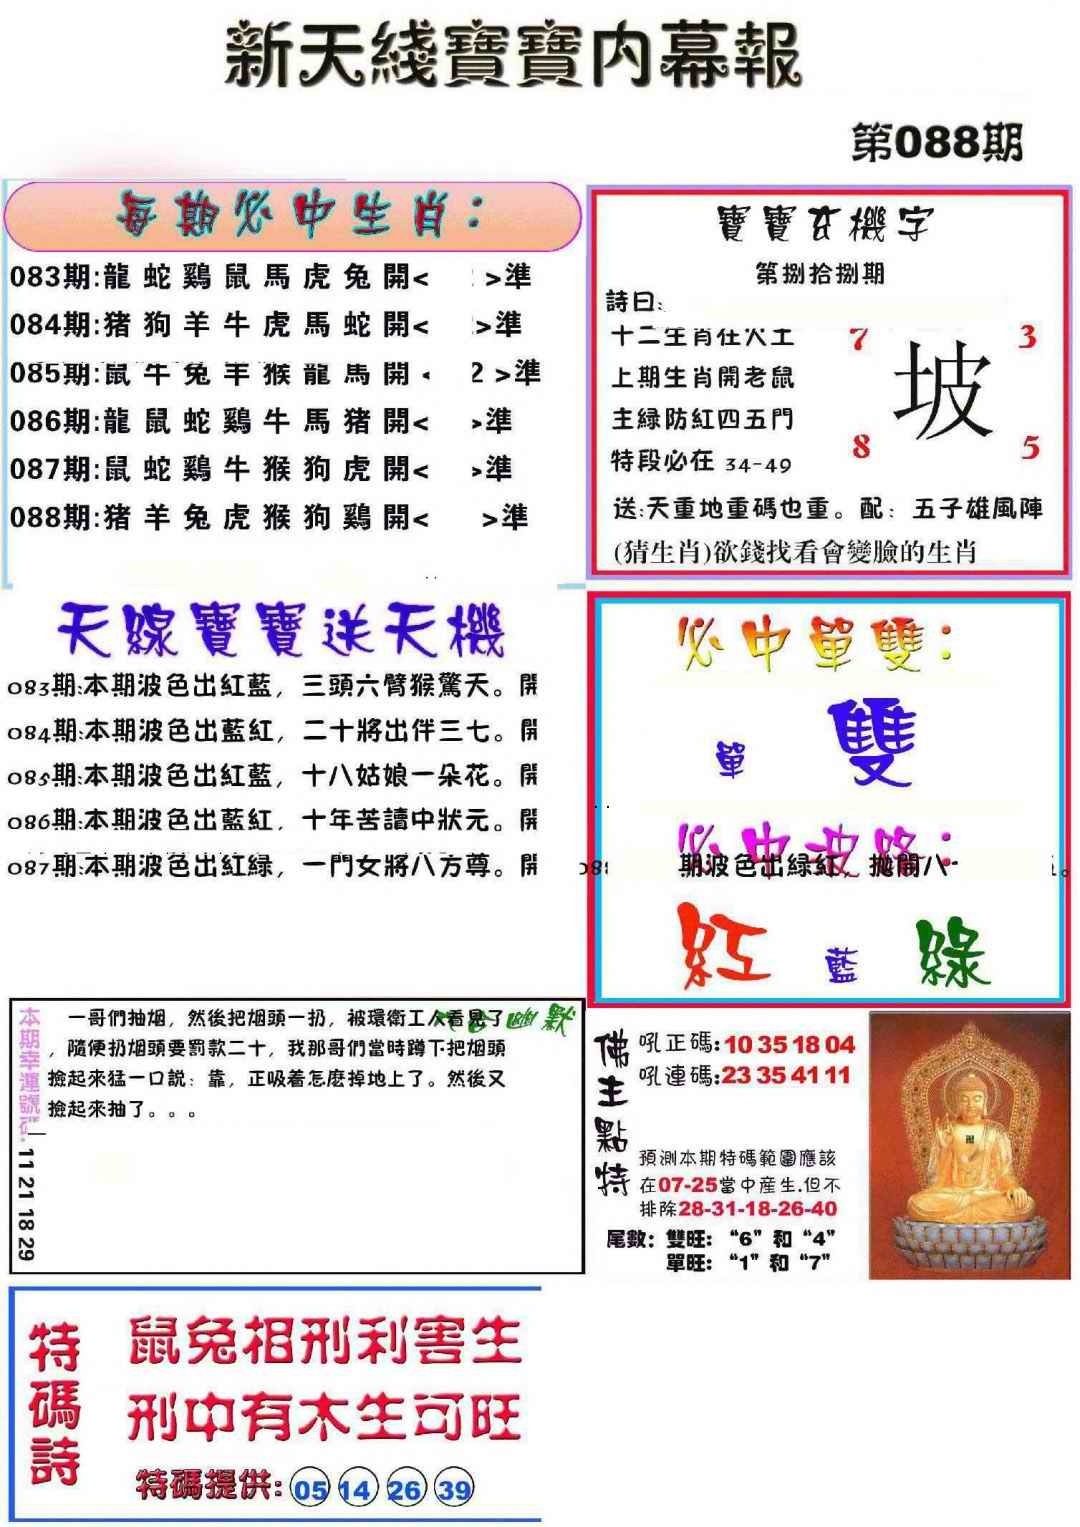 新天綫寶寶内幕報
第088期
每期必中生肖：
083期:龍 蛇 鷄 鼠 馬 虎 兔 開< >準
084期:猪 狗 羊 牛 虎 馬 蛇 開< >準
085期:鼠 牛 兔 羊 猴 龍 馬 開 2 >準
086期:龍 鼠 蛇 鷄 牛 馬 猪 開< >準
087期:鼠 蛇 鷄 牛 猴 狗 虎 開< >準
088期:猪 羊 兔 虎 猴 狗 鷄 開< >準
寶寶玄機字
第捌拾捌期
詩曰:
十二生肖在火土
上期生肖開老鼠
主緑防紅四五門
特段必在 34-49
7 3
坡
8 5
送:天重地重碼也重。配：五子雄風陣
(猜生肖)欲錢找看會變臉的生肖
天線寶寶送天機
083期:本期波色出紅藍，三頭六臂猴驚天。開
084期:本期波色出藍紅，二十將出伴三七。開
085期:本期波色出紅藍，十八姑娘一朵花。開
086期:本期波色出藍紅，十年苦讀中狀元。開
087期:本期波色出紅緑，一門女將八方尊。開
必中單雙：
單 雙
必中波路：
期波色出緑紅，拋開八
紅 藍 綠
幽默
一哥們抽烟，然後把烟頭一扔，被環衛工人看見了
，隨便扔烟頭要罰款二十，我那哥們當時蹲下把烟頭
撿起來猛一口説：靠，正吸着怎麽掉地上了。然後又
撿起來抽了。。。
本期幸運號碼:
11 21 18 29
佛主點特
吼正碼:10 35 18 04
吼連碼:23 35 41 11
預測本期特碼範圍應該
在07-25當中産生.但不
排除28-31-18-26-40
尾數：雙旺：“6”和“4”
單旺：“1”和“7”
特碼詩
鼠兔相刑利害生
刑中有木生可旺
特碼提供: 05 14 26 39